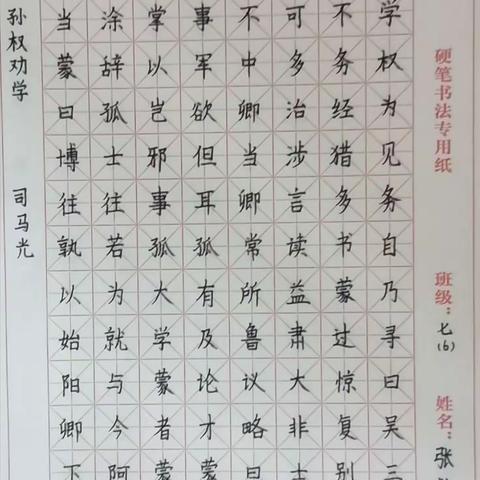 孙权劝学
司马光
当涂掌事不可不学
蒙辞以军中多务权
曰孤岂欲卿治经为
博士邪但当涉猎见
往往事耳卿言多务
孰若孤孤常读书自
以为大有所益蒙乃
始就学及鲁肃过寻
阳与蒙论议大惊曰
卿今者才略非复吴
下阿蒙蒙曰士别三
硬笔书法专用纸
班级：七(6)
姓名：张